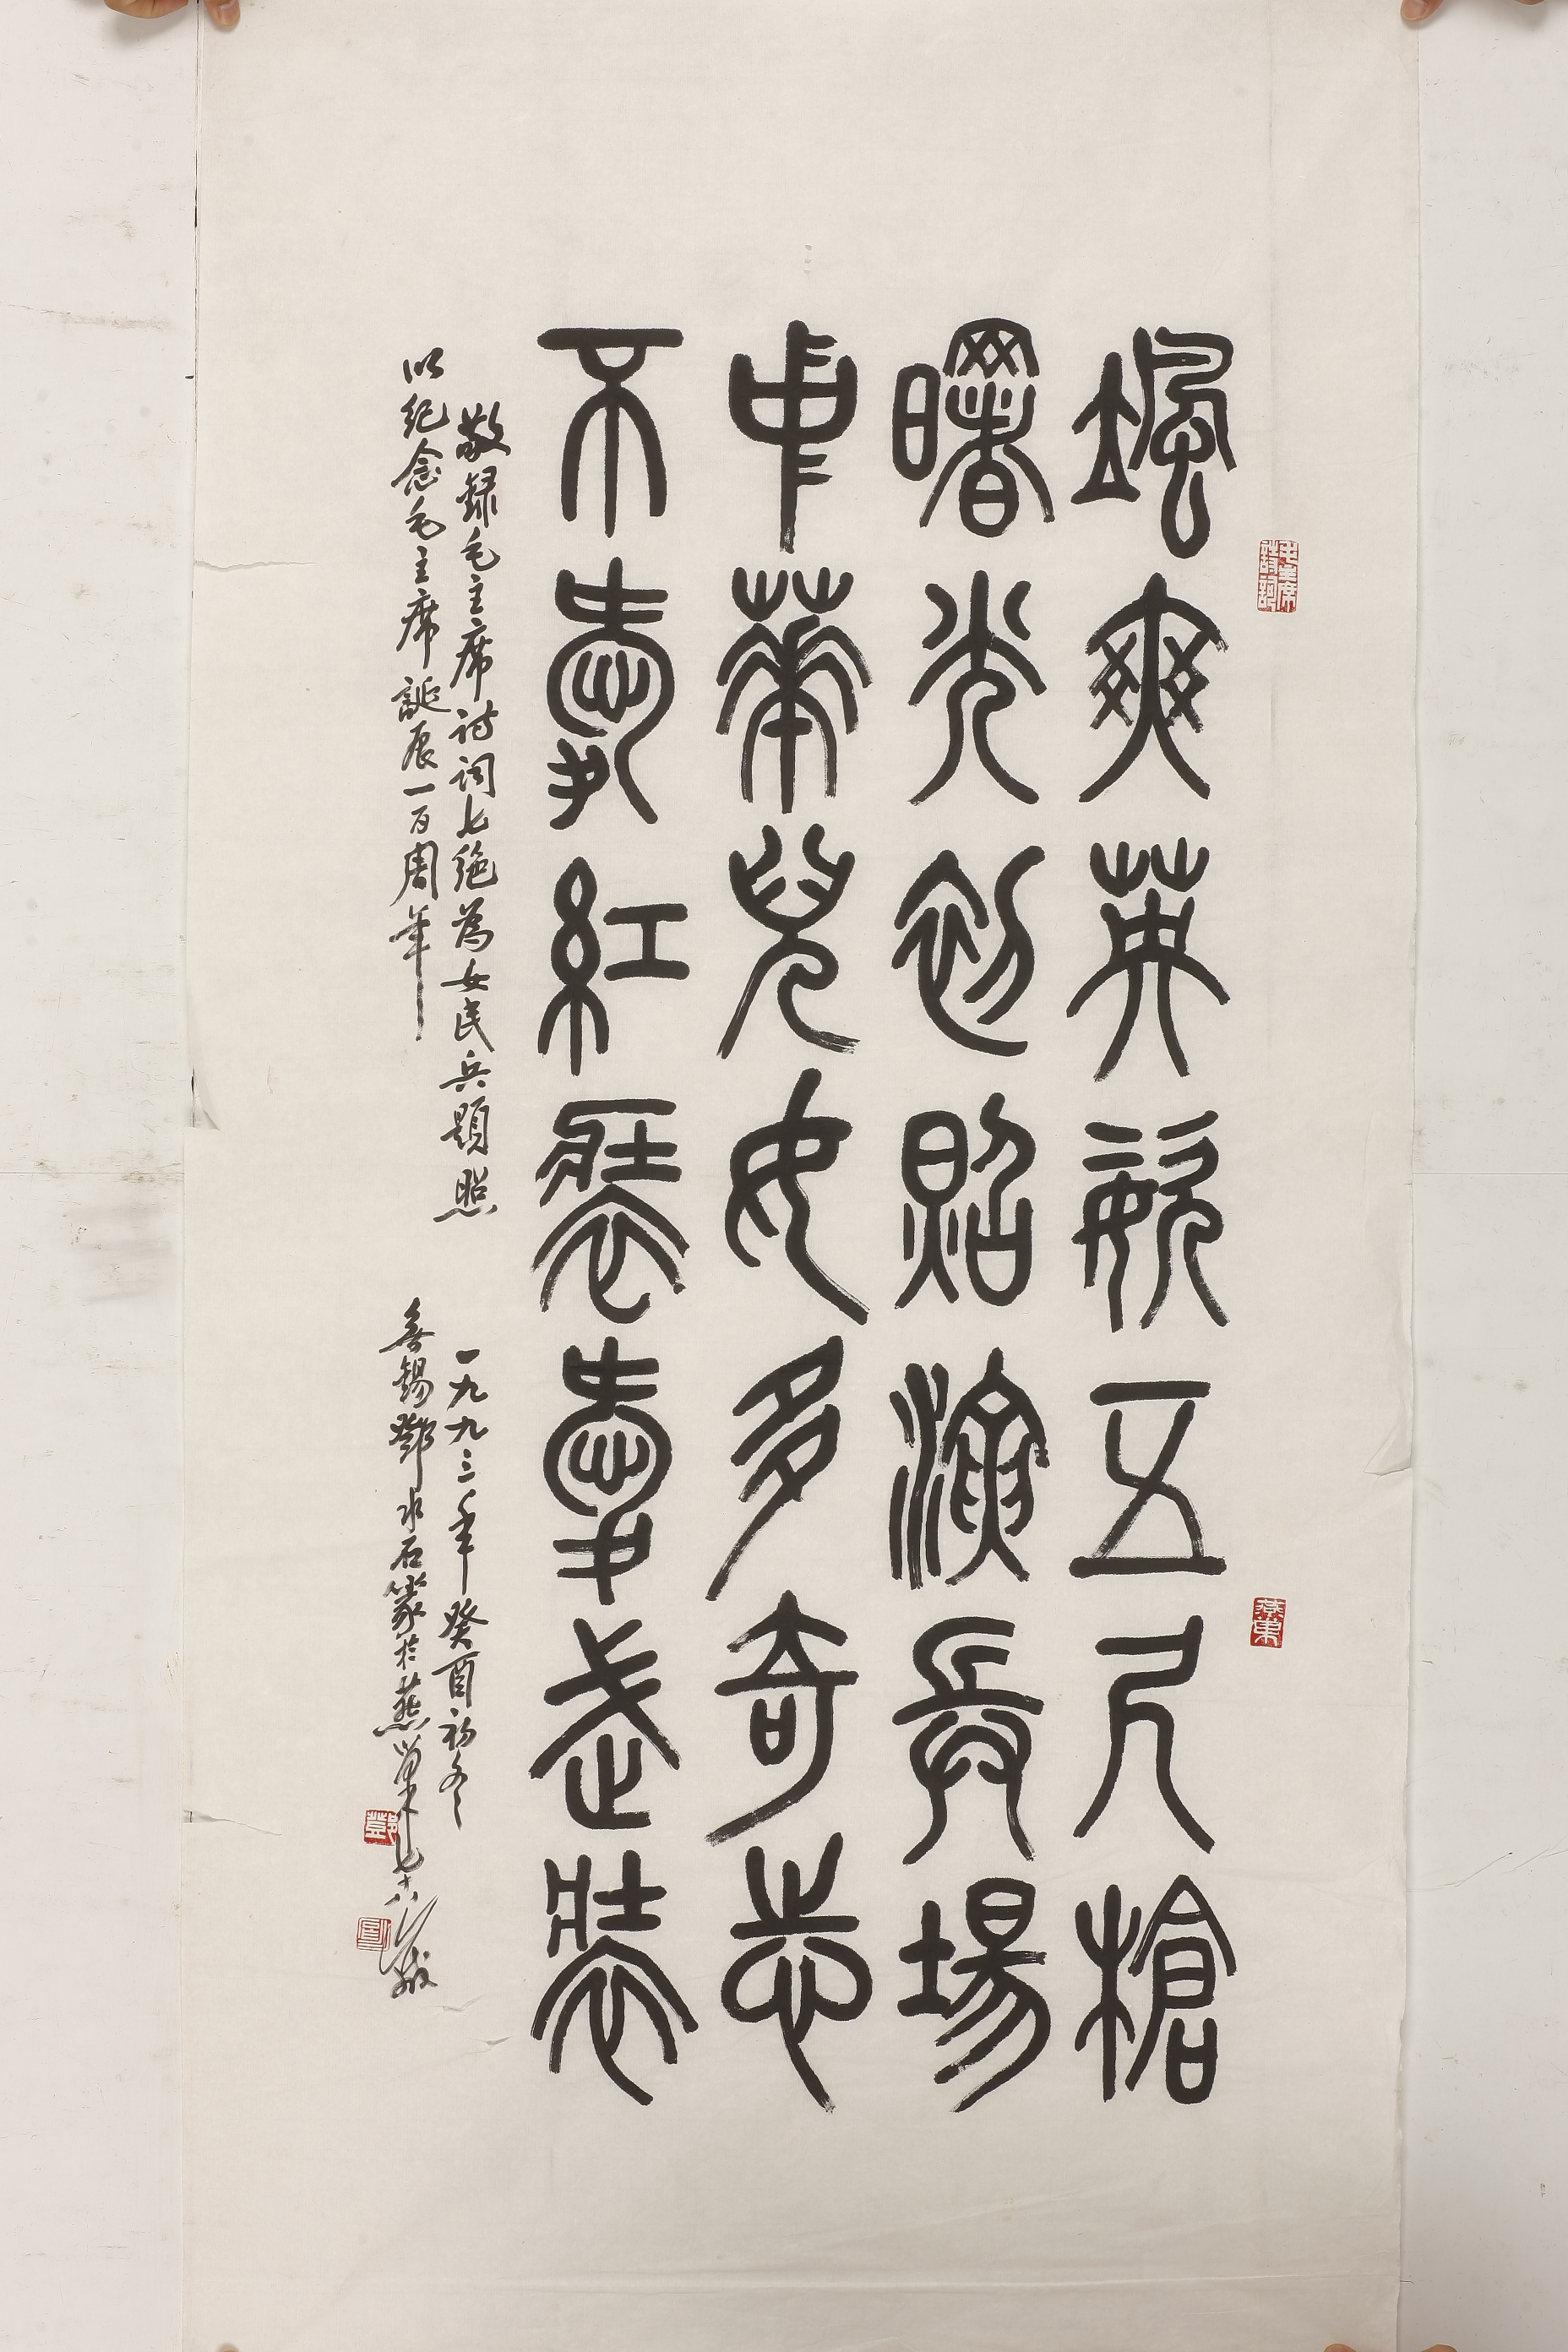 颯爽英姿五尺槍
曙光初照演兵場
中華兒女多奇志
不愛紅裝愛武裝
敬録毛主席詩詞七絶為女民兵題照
以紀念毛主席誕辰一百周年
一九九三年癸酉初冬
無錫鄧水石篆於燕巢七十八歲
毛主席詩詞
燕巢
鄧